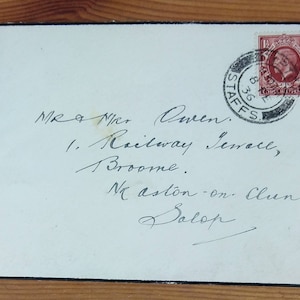 Mr & Mrs Owen.
1, Railway Terrace,
Broome.
Nr Aston-on-Clun
Salop
8
36
STAFFS